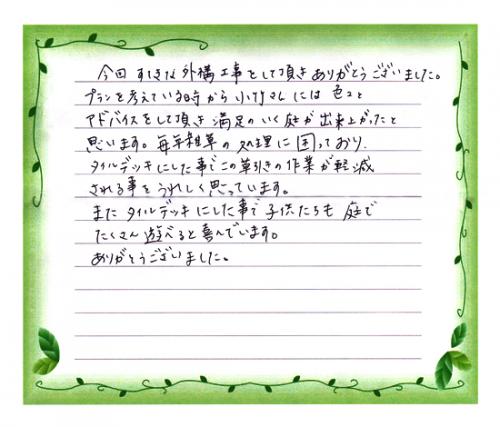 今回 すてきな外構工事をして頂きありがとうございました。
プランを考えている時から小竹さんには色々と
アドバイスをして頂き満足のいく庭が出来上がったと
思います。毎年雑草の処理に困っており、
タイルデッキにした事でこの草引きの作業が軽減
される事をうれしく思っています。
またタイルデッキにした事で子供たちも庭で
たくさん遊べると喜んでいます。
ありがとうございました。